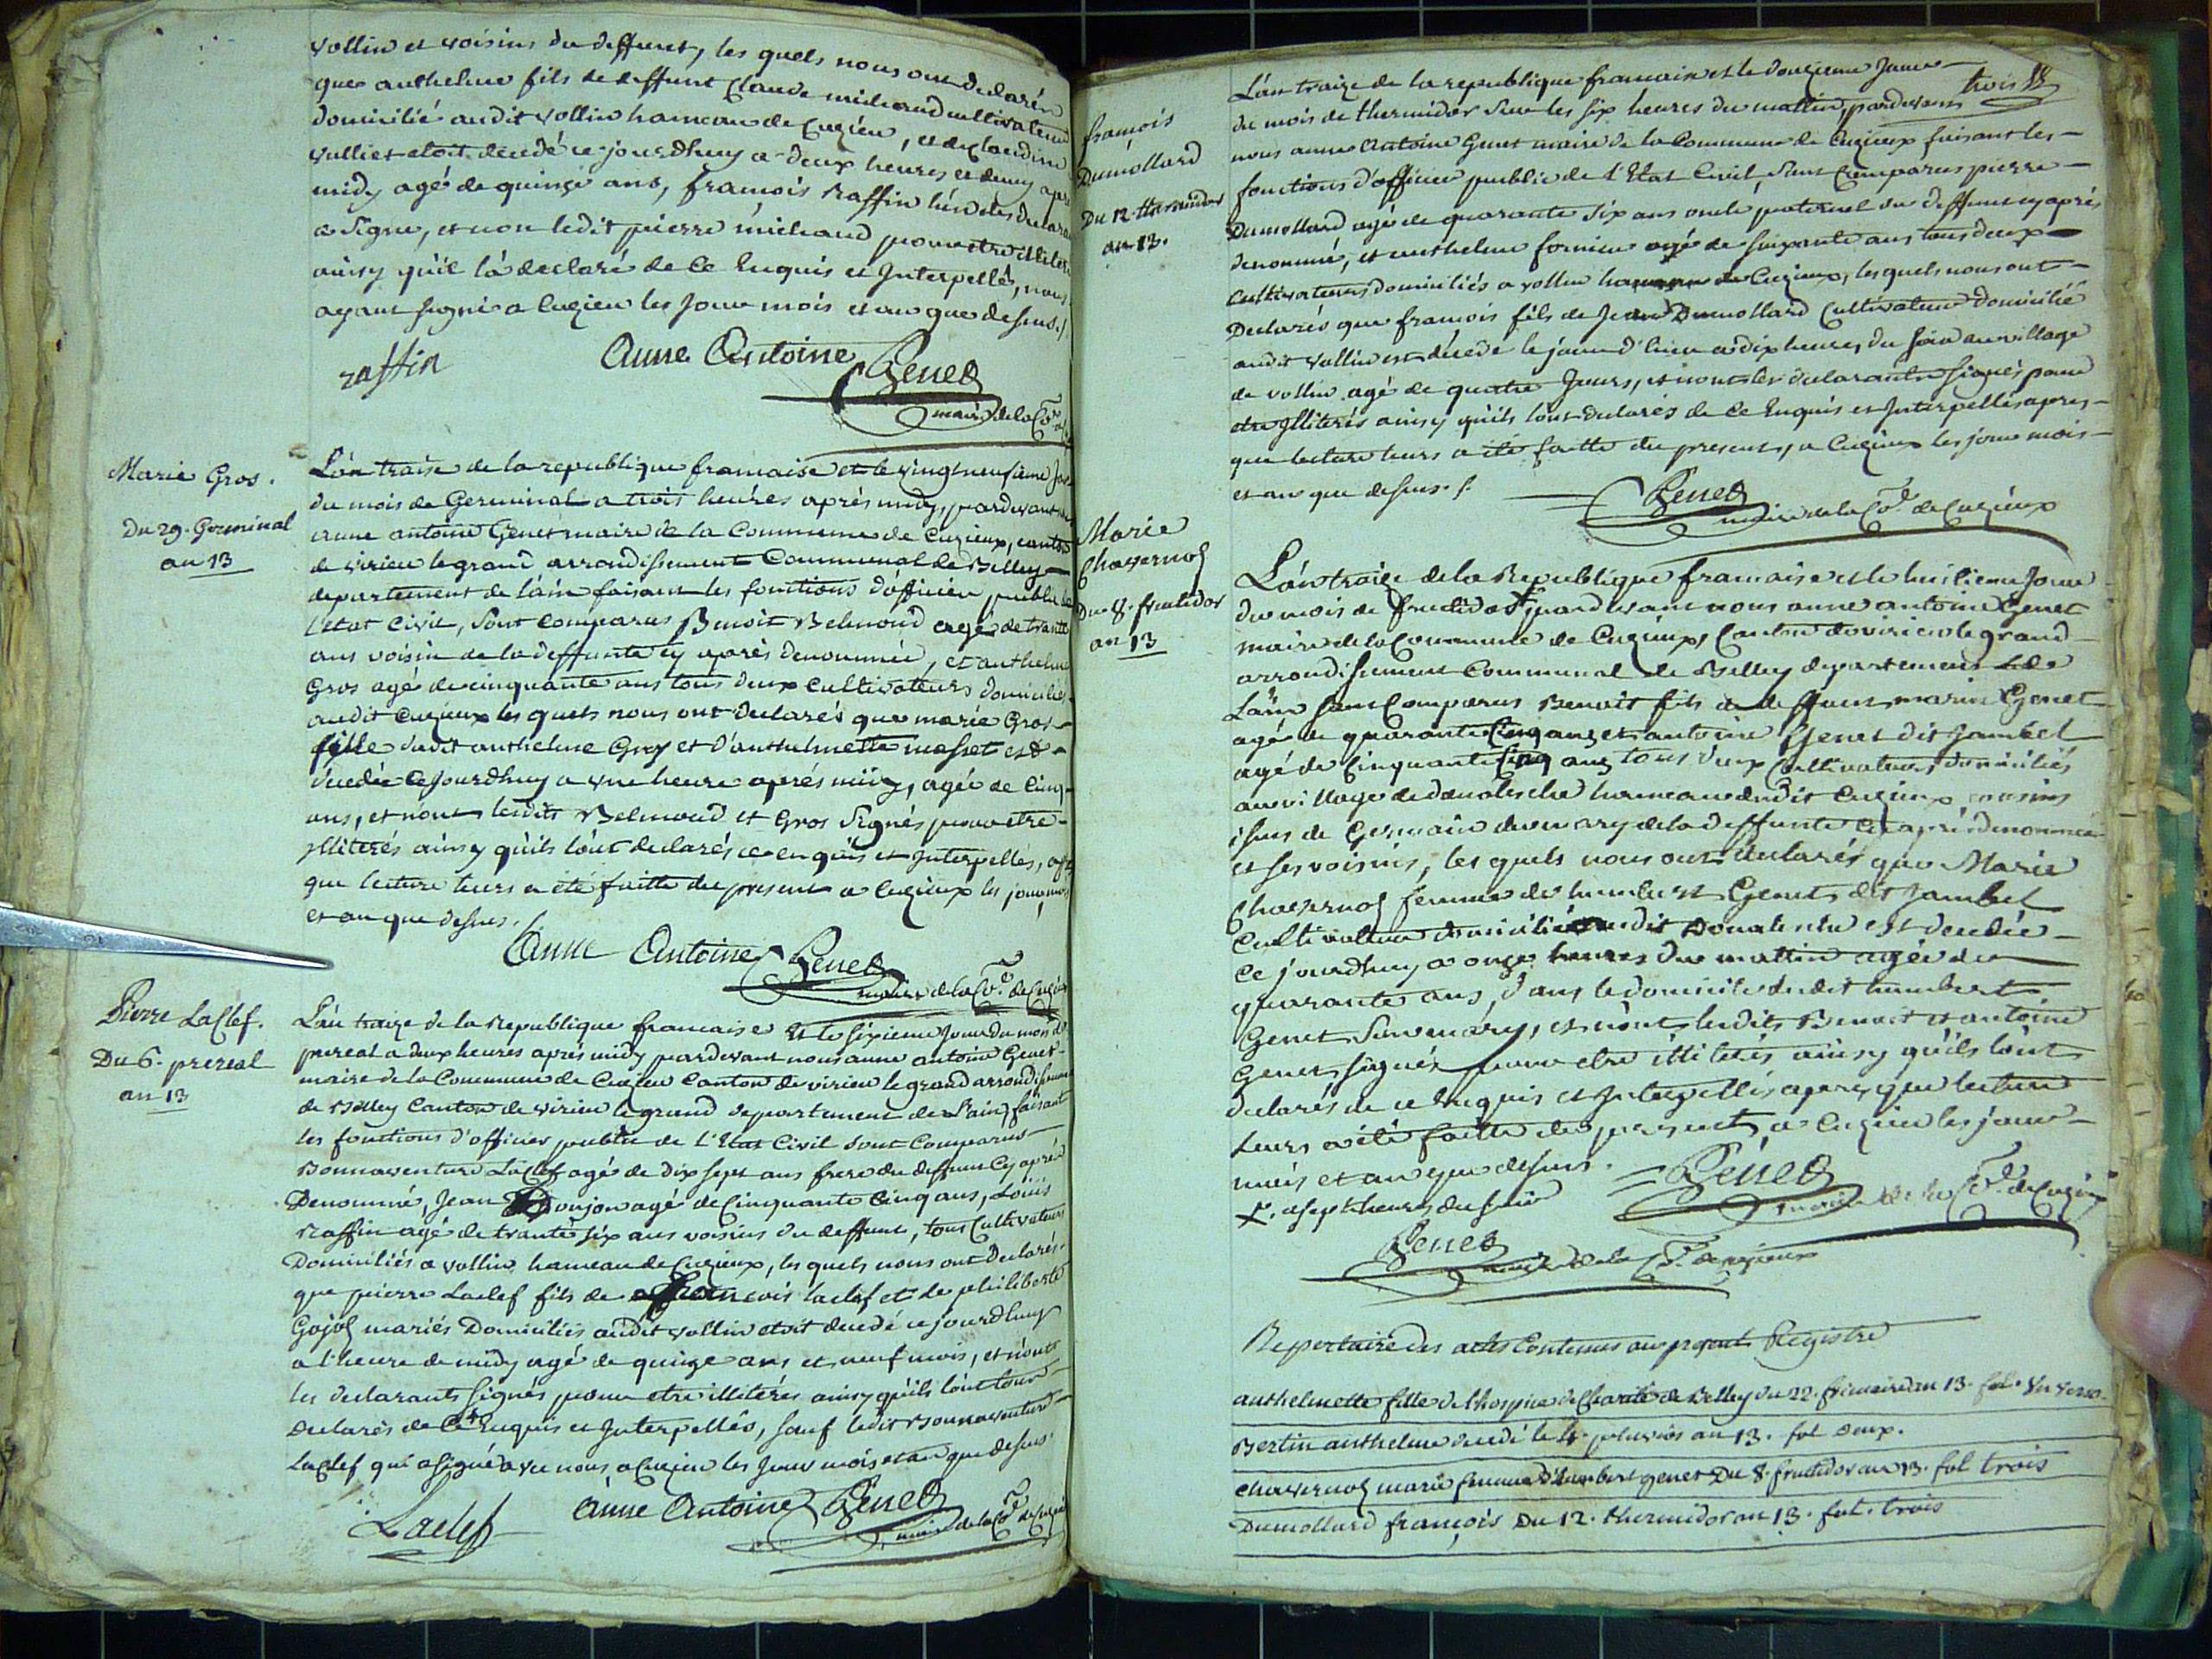 vollin et voisins du deffunt, les quels nous ont declarés
que anthelme fils de deffunt Claude michaud cultivateur
domicilié audit vollin hameau de Cuzieu, et de claudine
vulliet etoit decedé ce jourdhuy a deux heures et demy apré
midy agé de quinze ans, francois Raffin l'un des declara
a signe, et non ledit pierre michaud pour etre illiteré
ainsy qu'il la declaré de Ce Enquis et Interpellés, nous
ayant signé a Cuzieu les Jour mois et an que desus./
raffin
Anne Antoine Genet
maire de la Co.ne
Marie Gros.
Du 29. Germinal
an 13
L'an traise de la republique francaise et le vingtneufieme Jour
du mois de Germinal a trois heures aprés midy, pardevant
anne antoine Genet maire de la Commune de Cuzieux, canton
de virieu legrand arrondissement Communal de Belley
departement de lain faisant les fonctions d'officier public de
l'etat Civil, sont Comparus Benoit Belmond agé de trante
ans voisin de la deffunte cy aprés denommée, et anthelme
Gros agé de cinquante ans tous deux Cultivateurs domiciliés
audit Cuzieux les quels nous ont declarés que marie Gros
fille dudit anthelme Gros et D'anthelmette masset est
decedée Cejourdhuy a une heure aprés midy, agée de Cinq
ans, et n'ont lesdits Belmond et Gros Signés pour etre
illiterés ainsy qu'ils l'ont declarés ce enquis et Interpellés, aprs
que lecture leurs a été faitte du present a Cuzieux les jour mois
et an que desus.
Anne Antoine Genet
maire de la Co.ne de Cuzieux
Pierre Laclef.
Du 6. prereal
an 13
L'an traize de la Republique francaise et le sixieme Jour du mois de
prereal a deux heures aprés midy pardevant nous anne antoine Genet
maire de la Commune de Cuzieu Canton de virieu le grand arrondissement
de Belley Canton de virieu legrand departement de l'ain, faisant
les fonctions d'officier public de l'Etat Civil sont Comparus
Bonnaventure Laclef agé de dix sept ans frere du deffunt Cy aprés
Denommé, Jean Goujon agé de Cinquante Cinq ans, Louis
Raffin agé de trante six ans voisins du deffunt, tous Cultivateurs
Domiciliés a vollin hameau de Cuzieux, les quels nous ont Declarés
que pierre Laclef fils de francois laclef et de philiberte
Gojoz mariés Domiciliés audit vollin etoit decedé ce jourdhuy
a l'heure de midy agé de quinze ans et neuf mois, et n'ont
les declarants signés pour etre illiterés ainsy qu'ils l'ont tous
declarés de Ce Enquis et Interpellés, sauf ledit Bonnaventure
Laclef qui a signé avec nous a Cuzieu les Jour mois et an que desus
Laclef
Anne Antoine Genet
maire de la Co.ne de Cuzieu
trois
francois
Dumollard
Du 12 thermidor
an 13.
L'an traize de la republique francaise et le douzieme Jour
du mois de thermidor sur les six heures du mattin, pardevant
nous anne Antoine Genet maire de la Commune de Cuzieux faisant les
fonctions d'officier public de l'Etat Civil, sont Comparus pierre
Dumollard agé de quarante six ans oncle paternel du deffunt cy aprés
denommé, et anthelme fornier agé de soixante ans tous deux
Cultivateurs domiciliés a vollin hameau de Cuzieux, les quels nous ont
Declarés que francois fils de Jean Dumollard Cultivateur domicilié
audit vollin est décedé le jour d'hier a dix heures du soir au village
de vollin agé de quatre Jours, et n'ont les declarants signés pour
etre Illiterés ainsy qu'ils l'ont declarés de Ce Enquis et Interpellés apres
que lecture leurs a été faitte du present, a Cuzieux les jour mois
et an que desus./.
Genet
maire de la Co.ne de Cuzieux
Marie
Chavernoz
Du 8. fructidor
an 13
L'an traize de la Republique francaise et le huitieme Jour
du mois de fructidor + pardevant nous anne antoine Genet
maire de la Commune de Cuzieux, Canton de virieu le grand
arrondissement Communal de Belley departement de
L'ain sont Comparus Benoit fils de deffunt marin Genet
agé de quarante Cinq ans et antoine Genet dit Jambel
agé de Cinquante Cinq ans tous deux Cultivateurs domiciliés
au village de donalesche hameau dudit Cuzieux cousins
issus de Germain du mary de la deffunte Cy aprés denommée
et ses voisins, les quels nous ont declarés que Marie
Chavernoz femme de humbert Genet dit Jambel
Cultivateur domicilié audit Donalesche est decedée
Ce jourdhuy a onze heures du mattin agée de
quarante ans, dans le domicile dudit humbert
Genet Son mary, et n'ont lesdits Benoit et antoine
Genet, signés pour etre illiterés ainsy qu'ils l'ont
declarés de ce Enquis et Interpellés apres que lecture
leurs a été faitte du present, a Cuzieu les jour
mois et an que desus.
+. a sept heures du soir
Genet
maire de la Co.ne de Cuzieux
Genet
maire de la Co.ne de Cuzieux
Repertoire des actes Contenus au present Registre
anthelmette fille de l'hospice de Charité de Belley du 22. frimaire an 13. fol. 1er verso.
Bertin anthelme decedé le 4. pluvios an 13. fol deux.
Chavernoz marie femme d'humbert genet Du 8. fructidor an 13. fol trois
Dumollard françois Du 12. thermidor an 13. fol. trois